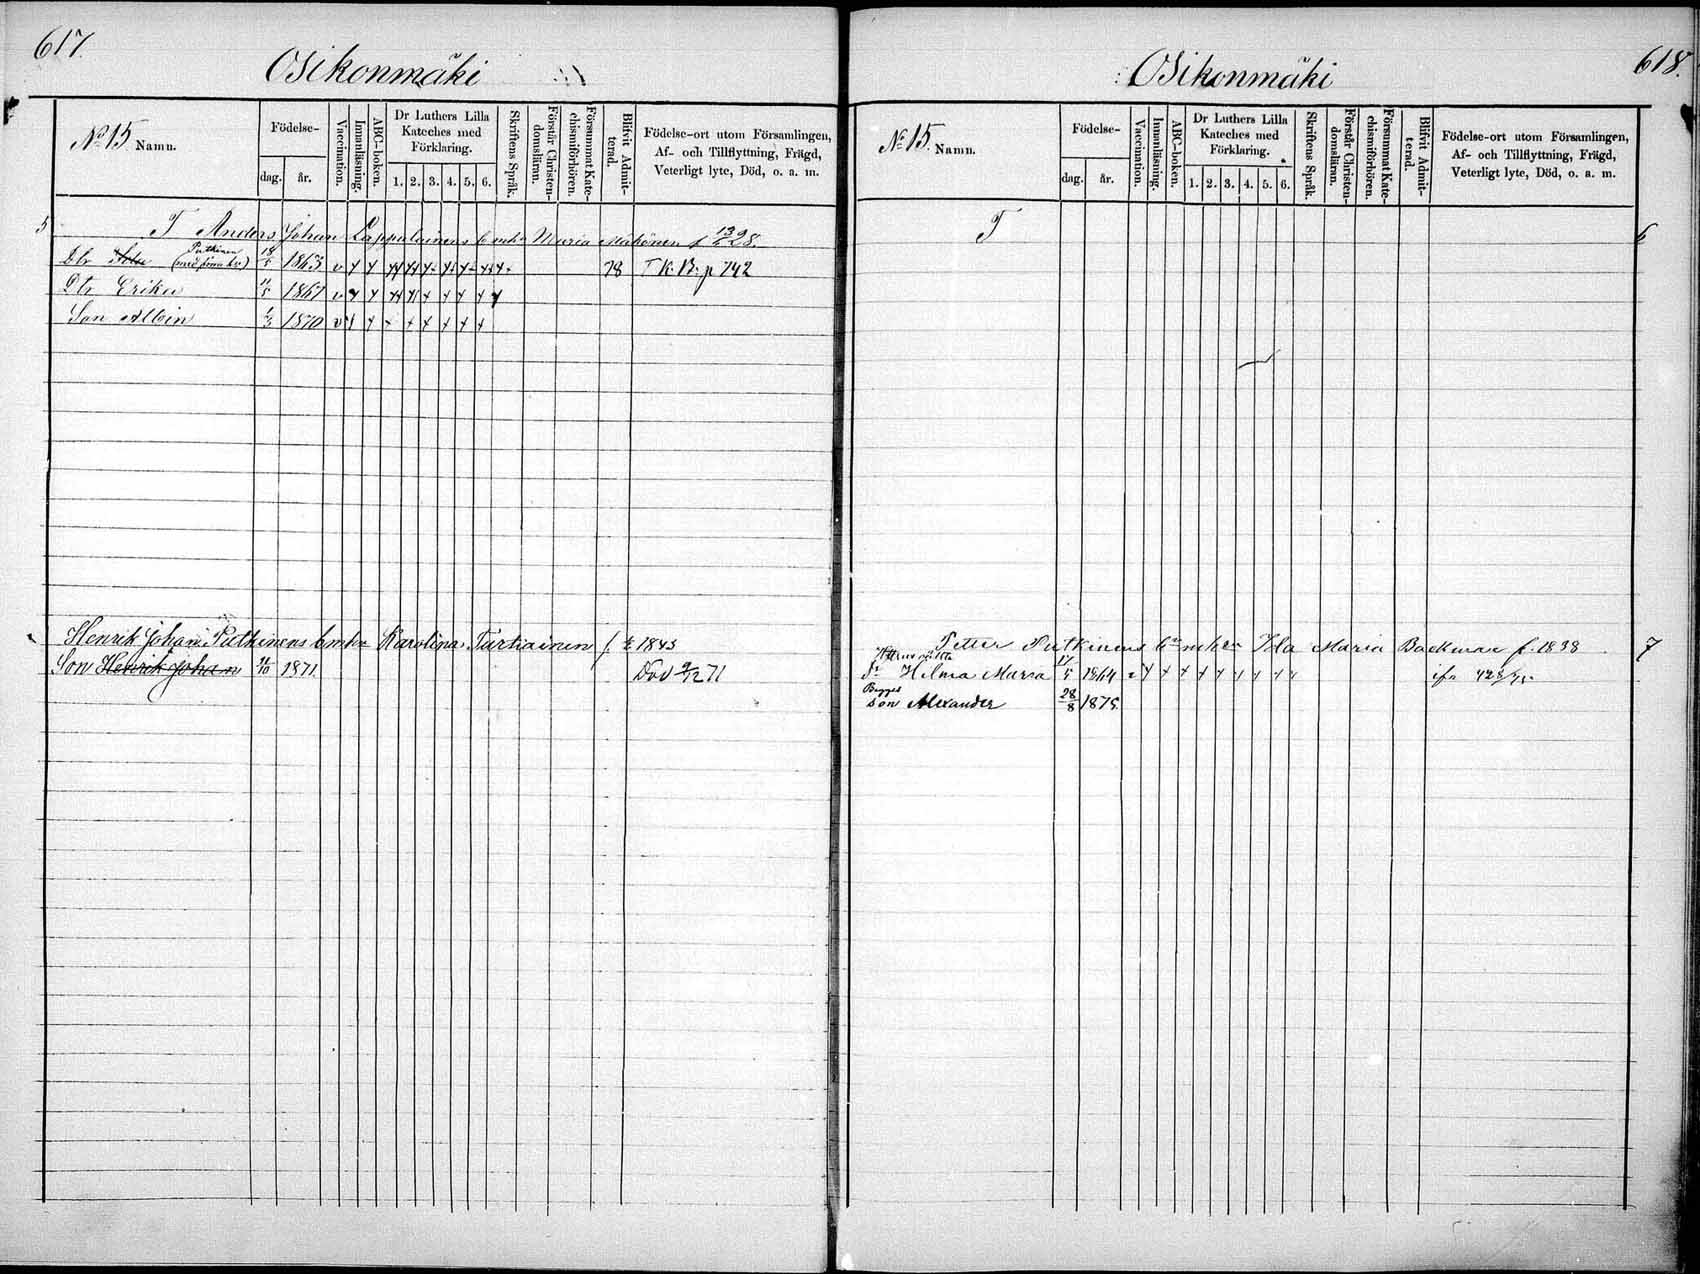 617.
Osikonmäki
No 15. Namn.
Födelse-
dag. år.
Vaccination.
Innanläsning.
ABC-boken.
Dr Luthers Lilla Kateches med Förklaring.
1. 2. 3. 4. 5. 6.
Skriftens Språk.
Förstår Christendomsläran.
Försummat Katechismiförhören.
Blifvit Admitterad.
Födelse-ort utom Församlingen, Af- och Tillflyttning, Frägd, Veterligt lyte, Död, o. a. m.
5
T Anders Johan Lappalainens Enka Maria Makönen f 28.
Putkinen
Dtr 1863 v 78 T K. B. p 742
Dtr Erika 1867 v
Son Albin 1870 v
Henrik Johan Putkinens Enka Karolina Turtiainen f. 1843
Son Henrik Johan 1871. Död 2/12 71
618.
Osikonmäki
No 15. Namn.
Födelse-
dag. år.
Vaccination.
Innanläsning.
ABC-boken.
Dr Luthers Lilla Kateches med Förklaring.
1. 2. 3. 4. 5. 6.
Skriftens Språk.
Förstår Christendomsläran.
Försummat Katechismiförhören.
Blifvit Admitterad.
Födelse-ort utom Församlingen, Af- och Tillflyttning, Frägd, Veterligt lyte, Död, o. a. m.
T
6
Petter Putkinens Ida Maria Backman f. 1838
7
Hilma Maria 17/5 1864
Begges
Son Alexander 28/8 1875.